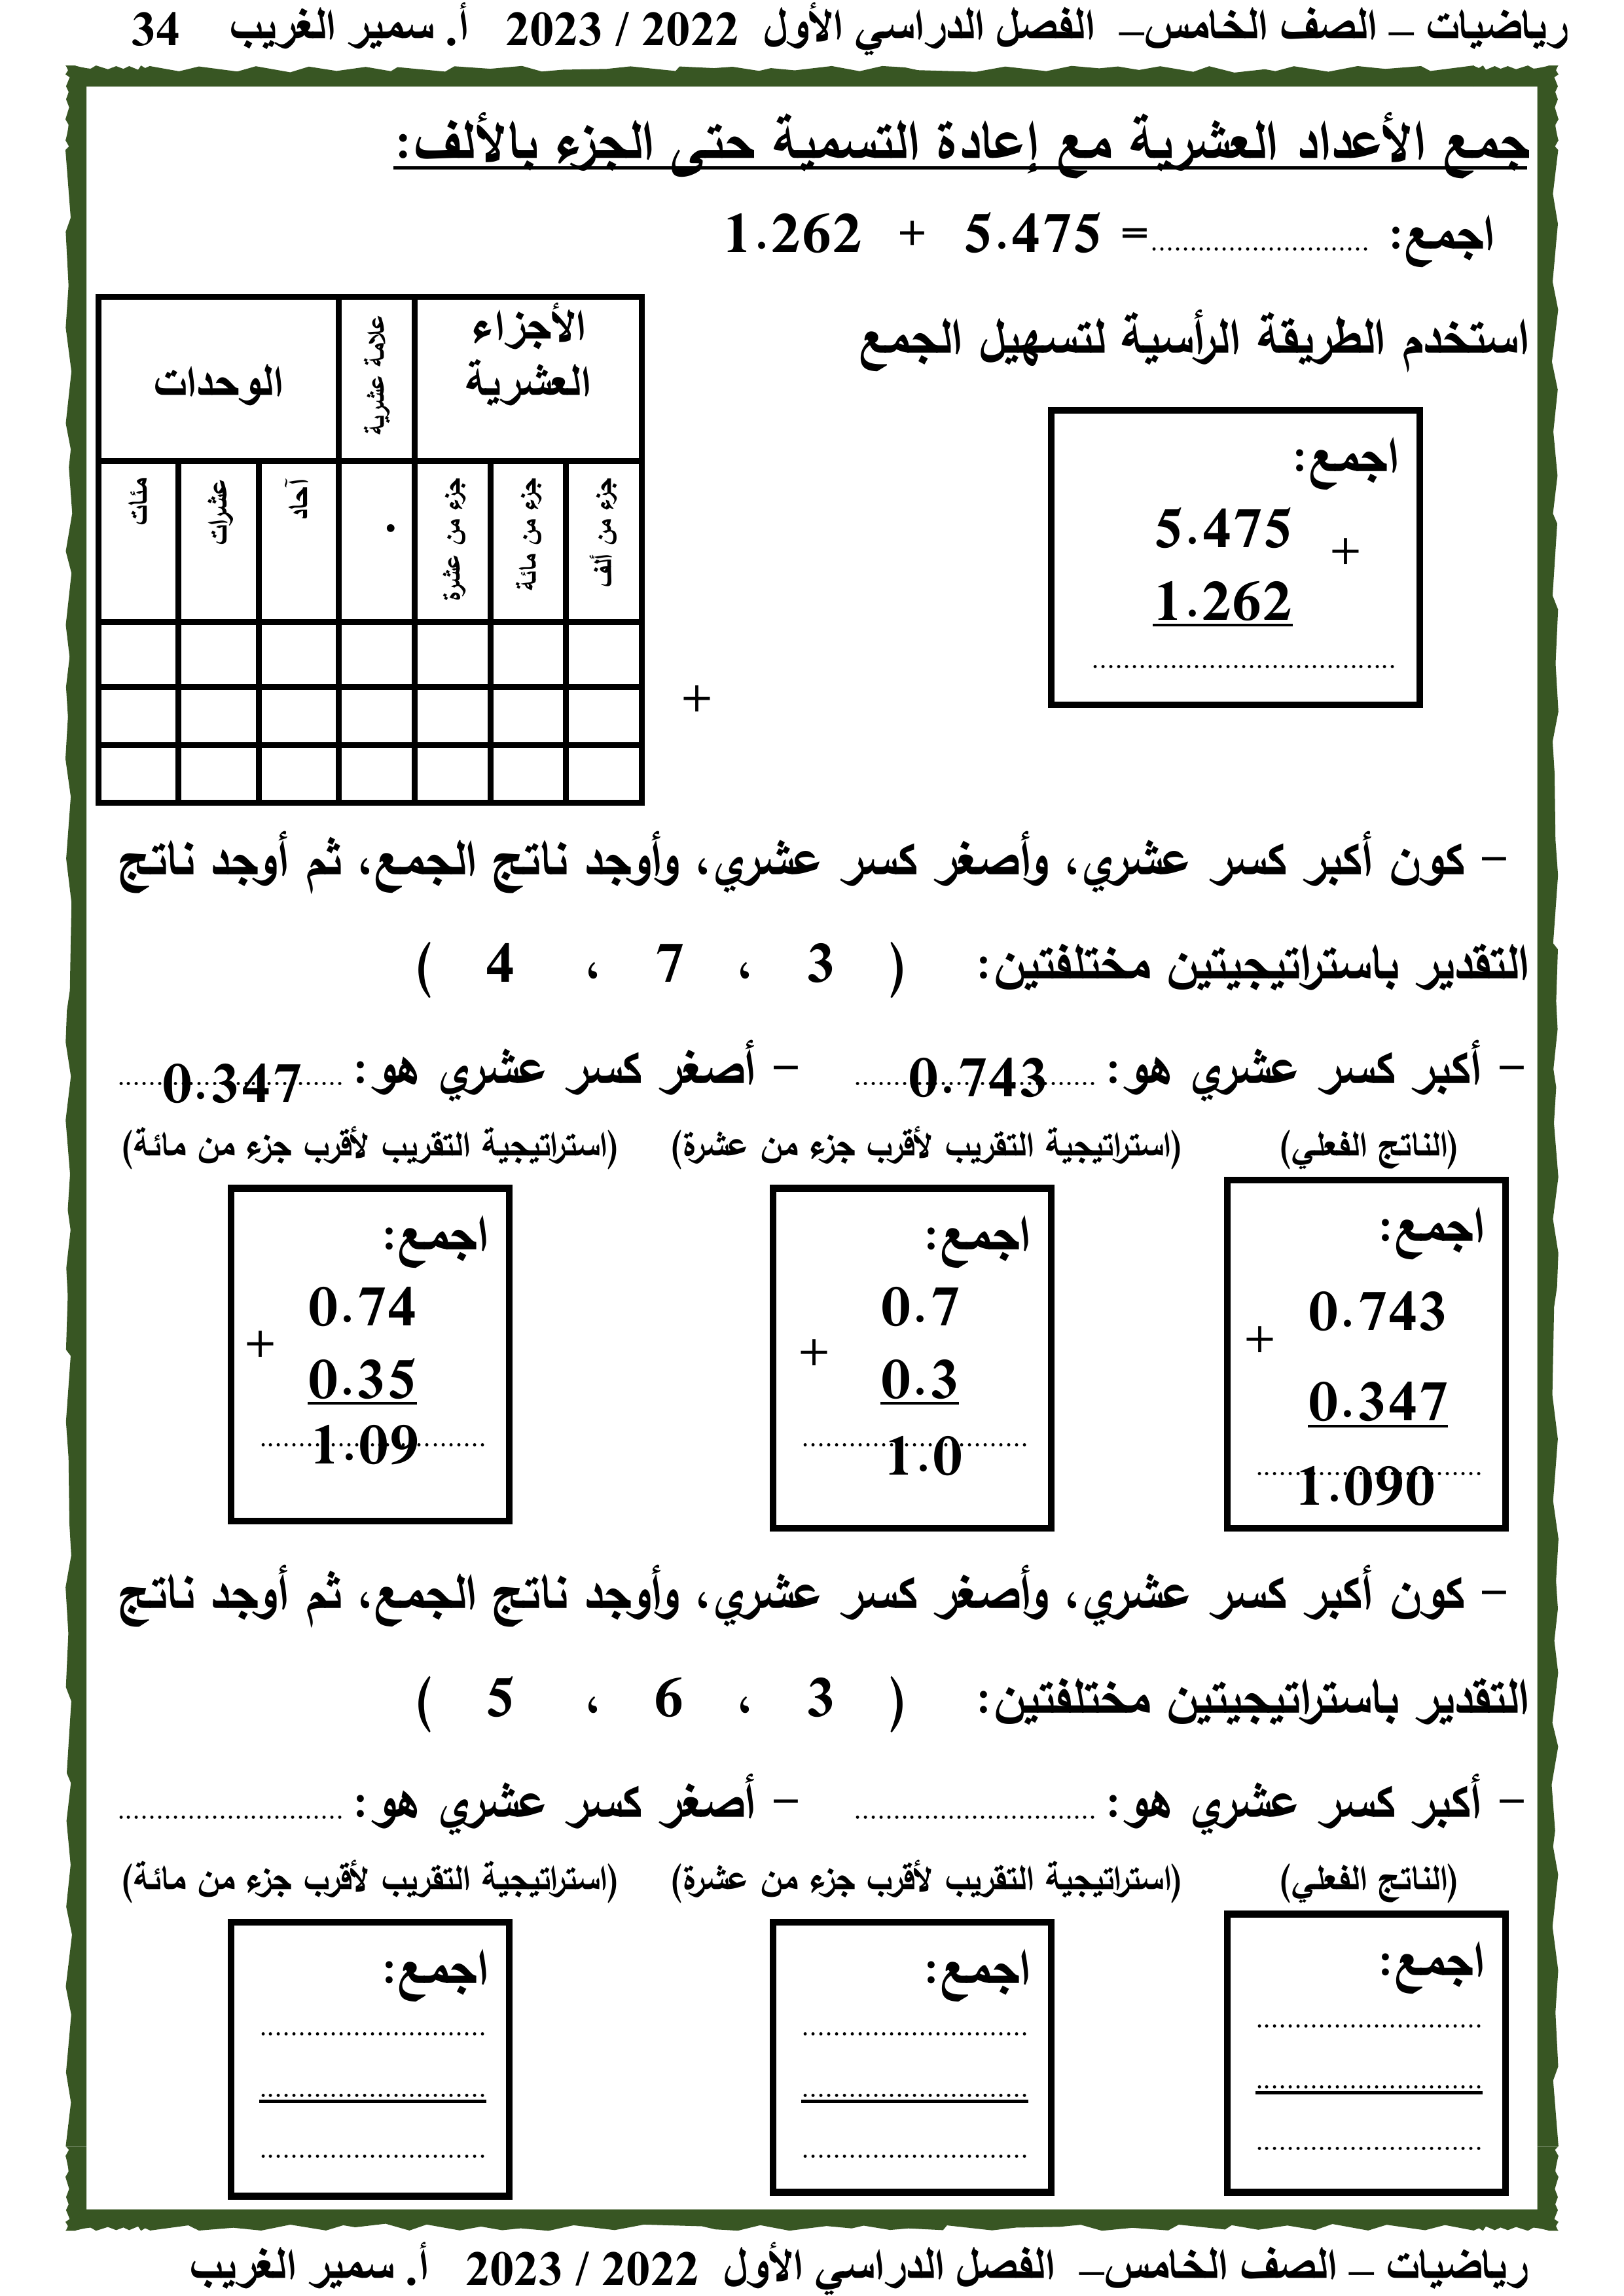 رياضيات – الصف الخامس– الفصل الدراسي الأول 2022 / 2023 أ. سمير الغريب 34
جمع الأعداد العشرية مع إعادة التسمية حتى الجزء بالألف:
اجمع: ............................= 5.475 + 1.262
استخدم الطريقة الرأسية لتسهيل الجمع
اجمع:
5.475
+
1.262
.......................................
الوحدات علامة عشرية الأجزاء العشرية
مئات عشرات آحاد . جزء من عشرة جزء من مائة جزء من ألف
+
– كون أكبر كسر عشري، وأصغر كسر عشري، وأوجد ناتج الجمع، ثم أوجد ناتج
التقدير باستراتيجيتين مختلفتين: ( 3 ، 7 ، 4 )
– أكبر كسر عشري هو: 0.743 – أصغر كسر عشري هو: 0.347
(الناتج الفعلي) (استراتيجية التقريب لأقرب جزء من عشرة) (استراتيجية التقريب لأقرب جزء من مائة)
اجمع:
0.743
+
0.347
1.090
اجمع:
0.7
+
0.3
1.0
اجمع:
0.74
+
0.35
1.09
– كون أكبر كسر عشري، وأصغر كسر عشري، وأوجد ناتج الجمع، ثم أوجد ناتج
التقدير باستراتيجيتين مختلفتين: ( 3 ، 6 ، 5 )
– أكبر كسر عشري هو: ............................... – أصغر كسر عشري هو: .............................
(الناتج الفعلي) (استراتيجية التقريب لأقرب جزء من عشرة) (استراتيجية التقريب لأقرب جزء من مائة)
اجمع:
.............................
.............................
.............................
اجمع:
.............................
.............................
.............................
اجمع:
.............................
.............................
.............................
رياضيات – الصف الخامس– الفصل الدراسي الأول 2022 / 2023 أ. سمير الغريب